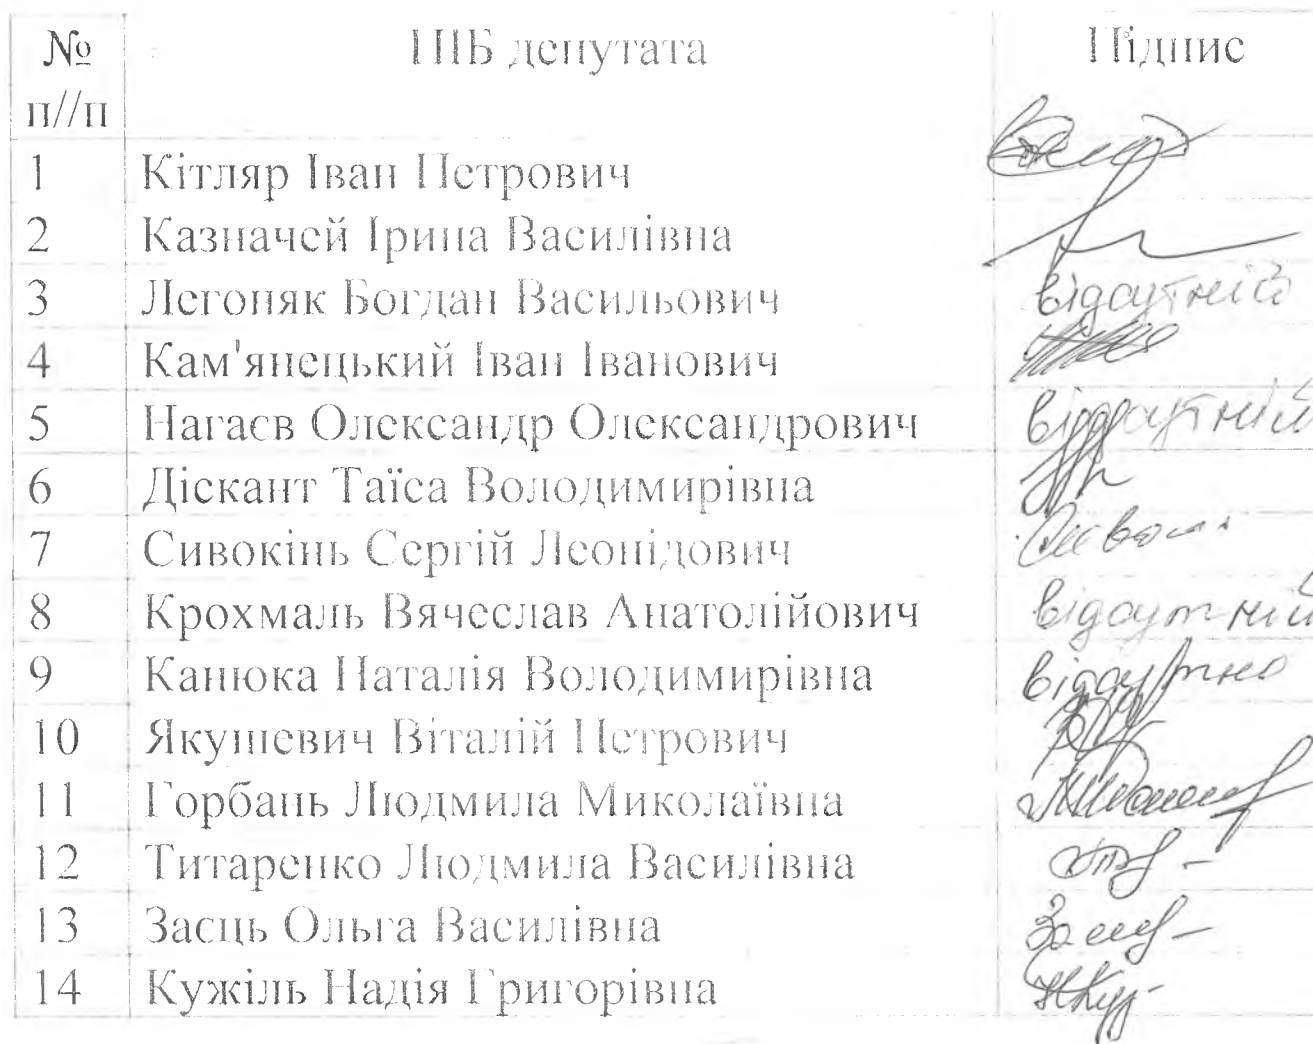 № ПІБ депутата Підпис
п//п
1 Кітляр Іван Петрович
2 Казначей Ірина Василівна
3 Легоняк Богдан Васильович відсутній
4 Кам'янецький Іван Іванович
5 Нагаєв Олександр Олександрович відсутній
6 Діскант Таїса Володимирівна
7 Сивокінь Сергій Леонідович
8 Крохмаль Вячеслав Анатолійович відсутній
9 Канюка Наталія Володимирівна відсутня
10 Якушевич Віталій Петрович
11 Горбань Людмила Миколаївна
12 Титаренко Людмила Василівна
13 Заєць Ольга Василівна
14 Кужіль Надія Григорівна